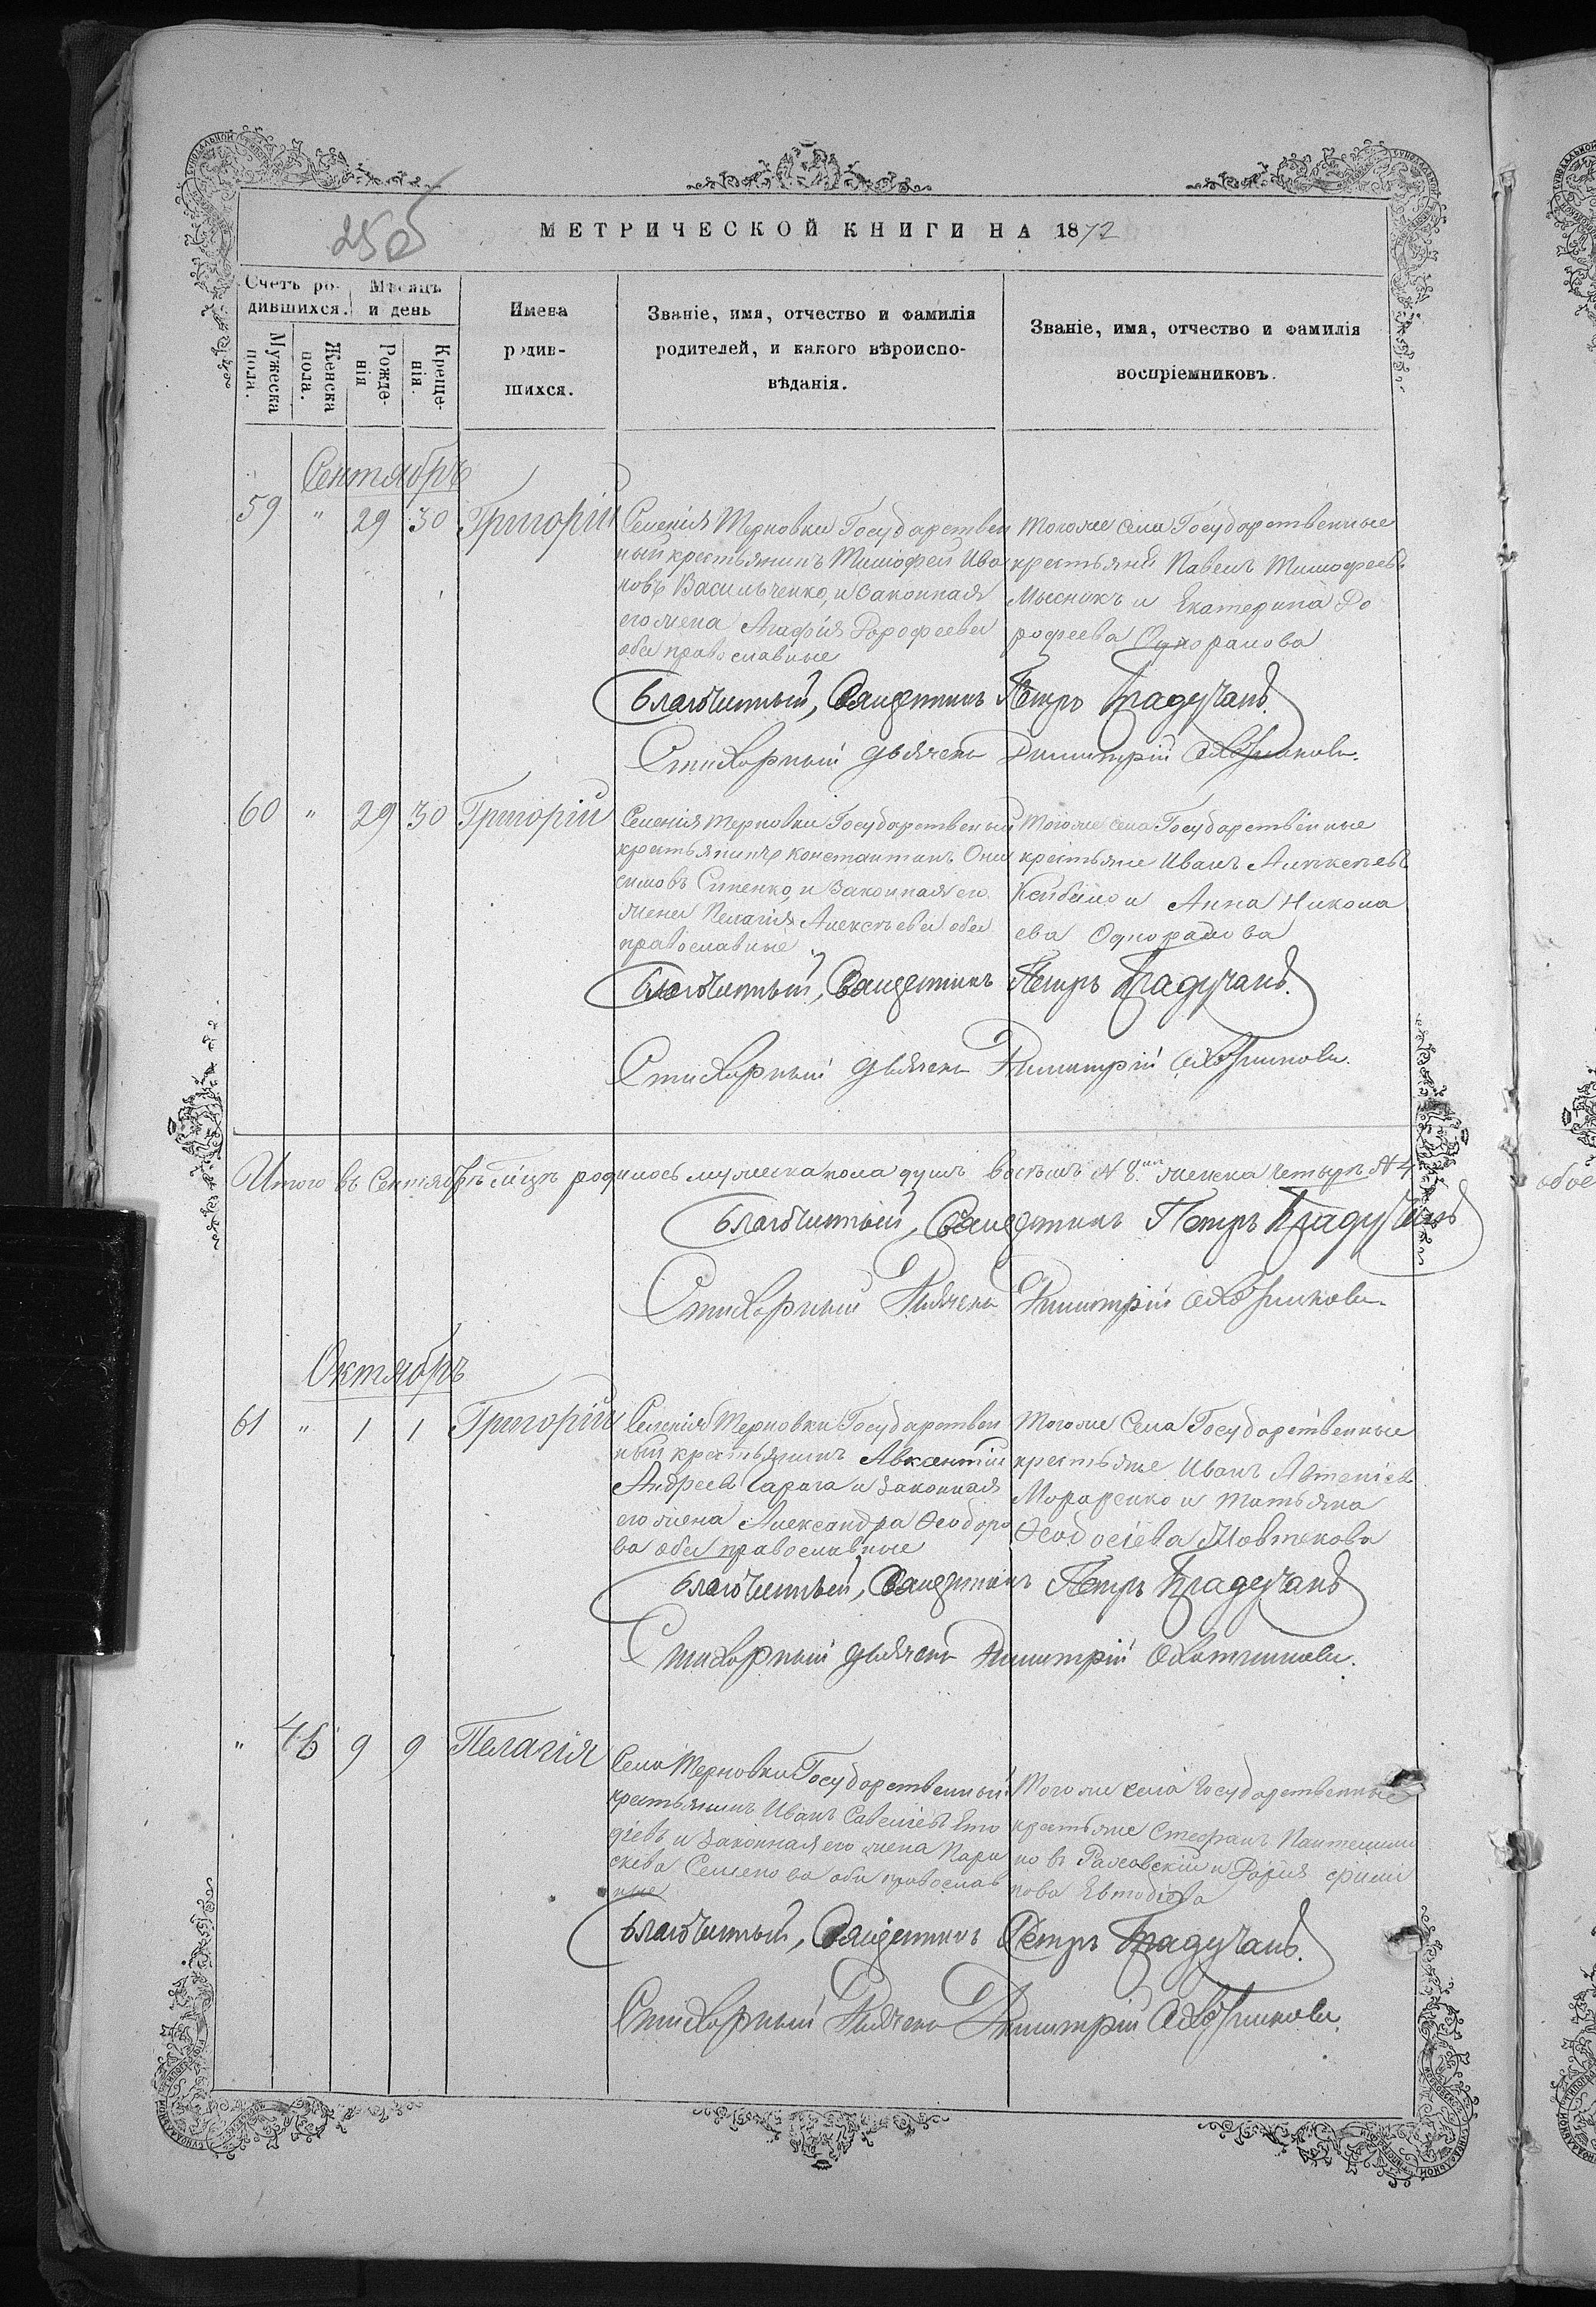 250
МЕТРИЧЕСКОЙ КНИГИ НА 1872
Счетъ ро-
дившихся.
Мѣсяцъ
и день
Мужеска
пола.
Женска
пола.
Рожде-
нія
Креще-
нія.
Имена
родив-
шихся.
Званіе, имя, отчество и фамилія
родителей, и какого вѣроиспо-
вѣданія.
Званіе, имя, отчество и фамилія
воспріемниковъ.
Сентябрь
59 " 29 30 Григорій
Селенія Терновки Государствен
ный крестьянинъ Тимофей Ива
новъ Васильченко, и законная
его жена Агафія Дорофеева
оба православные
Тогоже села Государственные
крестьяне Павелъ Тимофеевъ
Мысникъ и Екатерина До
рофеева Однорамова
Благочинный, Священникъ Петръ
Стихарный дьячекъ Димитрій
60 " 29 30 Григорій
Селенія Терновки Государственный
крестьянинъ Константинъ Они
симовъ Сипенко, и законная его
жена Пелагія Алексѣева оба
православные
Тогоже села Государственные
крестьяне Иванъ Алексѣевъ
и Анна Никола
ева Однорамова
Благочинный, Священникъ Петръ
Стихарный дьячекъ Димитрій
Итого въ Сентябрѣ мцѣ родилось мужеска пола душъ восемь № 8. женска четыре № 4
Благочинный, Священникъ Петръ
Стихарный Дьячекъ Димитрій
Октябрь
61 " 1 1 Григорій
Селенія Терновки Государствен
ный крестьянинъ Авксентій
Андреевъ и законная
его жена Александра Ѳеодоро
ва оба православные
Тогоже Села Государственные
крестьяне Иванъ
и Татьяна
Ѳеодосіева
Благочинный, Священникъ Петръ
Стихарный дьячекъ Димитрій
" 46 9 9 Пелагія
Села Терновки Государственный
крестьянинъ Иванъ Савельевъ Евто
діевъ и законная его жена Пара
скева Семенова оба православ
ные
Тогоже села Государственные
крестьяне Стефанъ Пантелимо
новъ и Дарія
нова Евтодіева
Благочинный, Священникъ Петръ
Стихарный Дьячекъ Димитрій